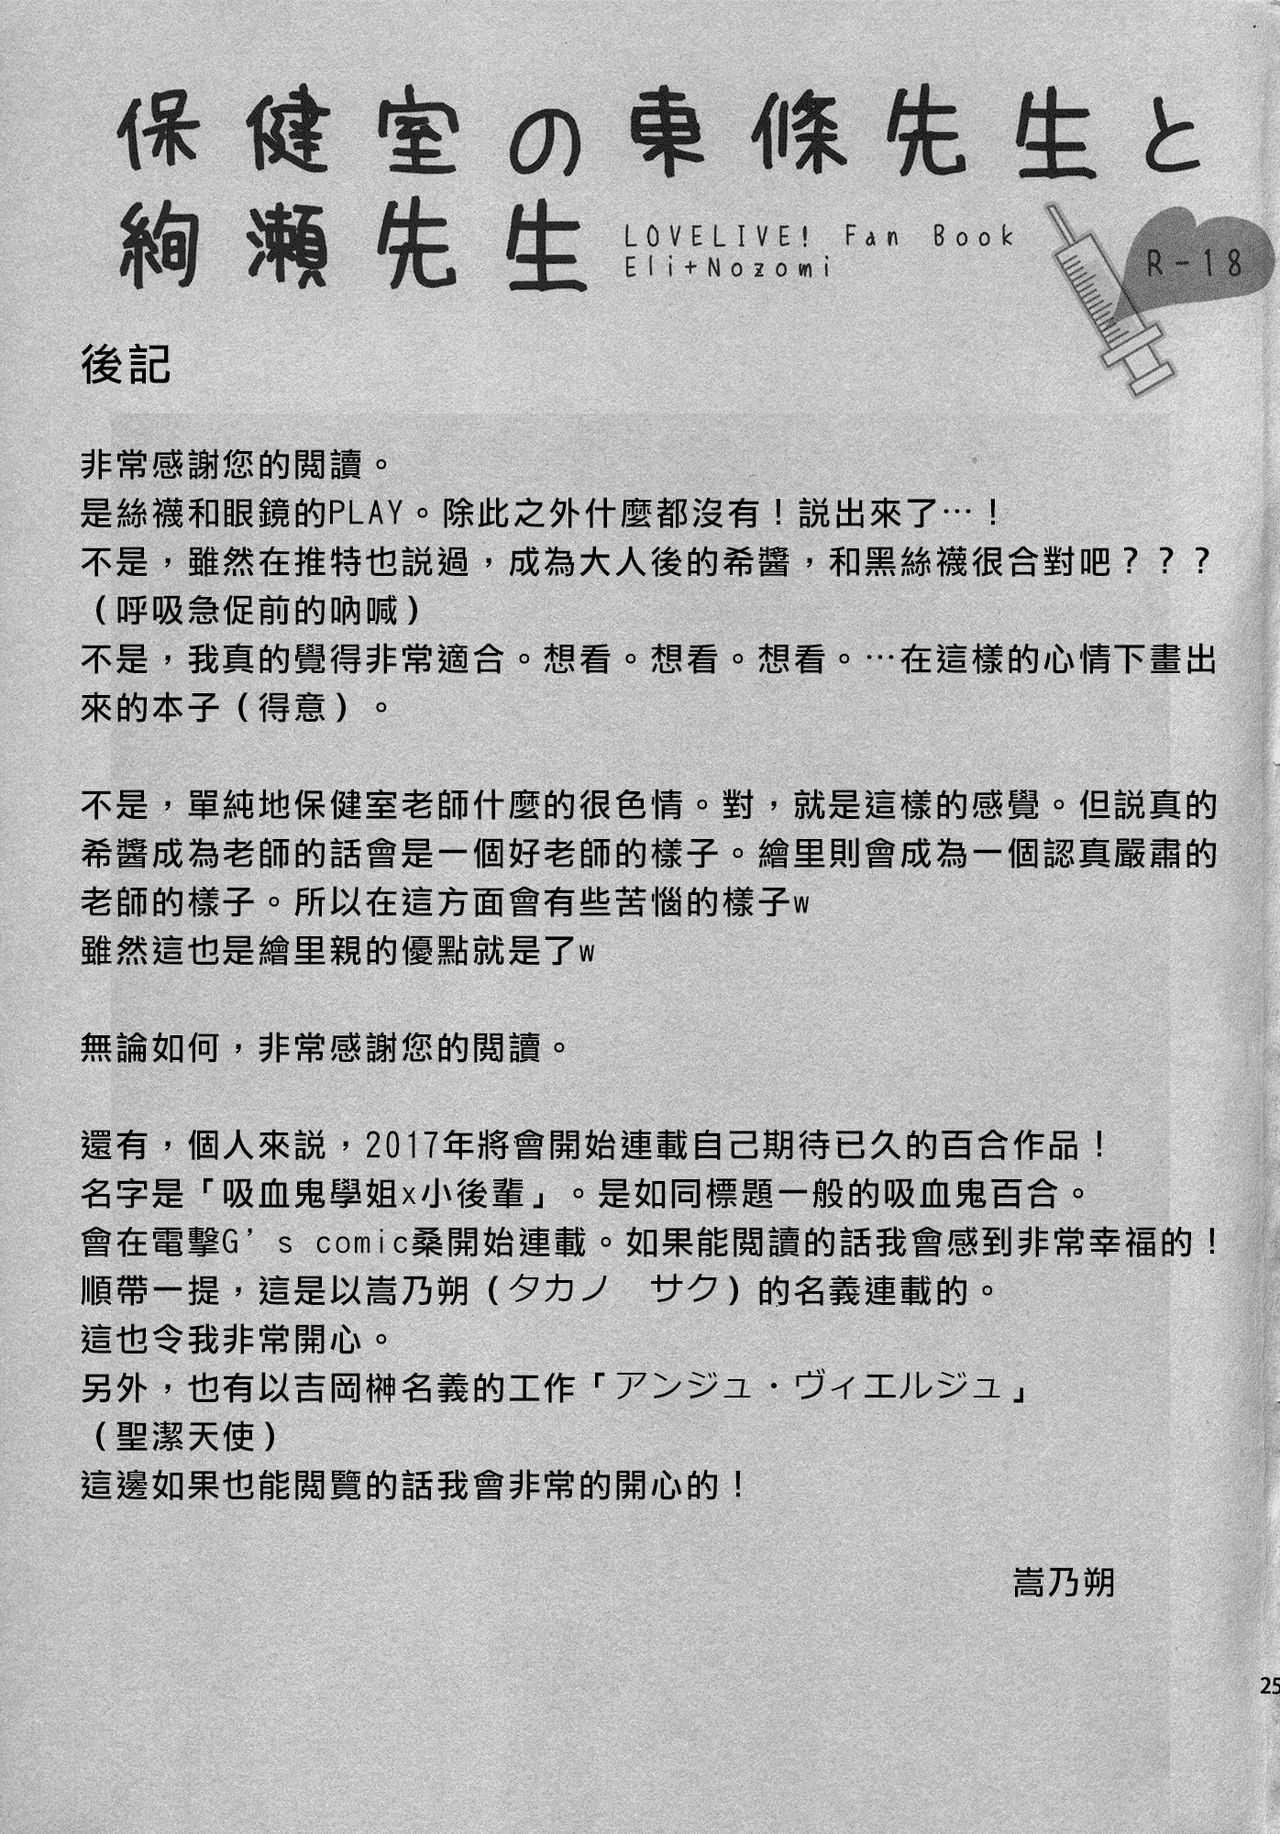 保健室の東條先生と
絢瀬先生
LOVELIVE! Fan Book
Eli+Nozomi
R-18
後記
非常感謝您的閱讀。
是絲襪和眼鏡的PLAY。除此之外什麼都沒有！説出來了…！
不是，雖然在推特也説過，成為大人後的希醬，和黑絲襪很合對吧？？？
（呼吸急促前的吶喊）
不是，我真的覺得非常適合。想看。想看。想看。…在這樣的心情下畫出
來的本子（得意）。
不是，單純地保健室老師什麼的很色情。對，就是這樣的感覺。但説真的
希醬成為老師的話會是一個好老師的樣子。繪里則會成為一個認真嚴肅的
老師的樣子。所以在這方面會有些苦惱的樣子w
雖然這也是繪里親的優點就是了w
無論如何，非常感謝您的閱讀。
還有，個人來説，2017年將會開始連載自己期待已久的百合作品！
名字是「吸血鬼學姐x小後輩」。是如同標題一般的吸血鬼百合。
會在電擊G’s comic桑開始連載。如果能閱讀的話我會感到非常幸福的！
順帶一提，這是以嵩乃朔（タカノ　サク）的名義連載的。
這也令我非常開心。
另外，也有以吉岡榊名義的工作「アンジュ・ヴィエルジュ」
（聖潔天使）
這邊如果也能閱覽的話我會非常的開心的！
嵩乃朔
25